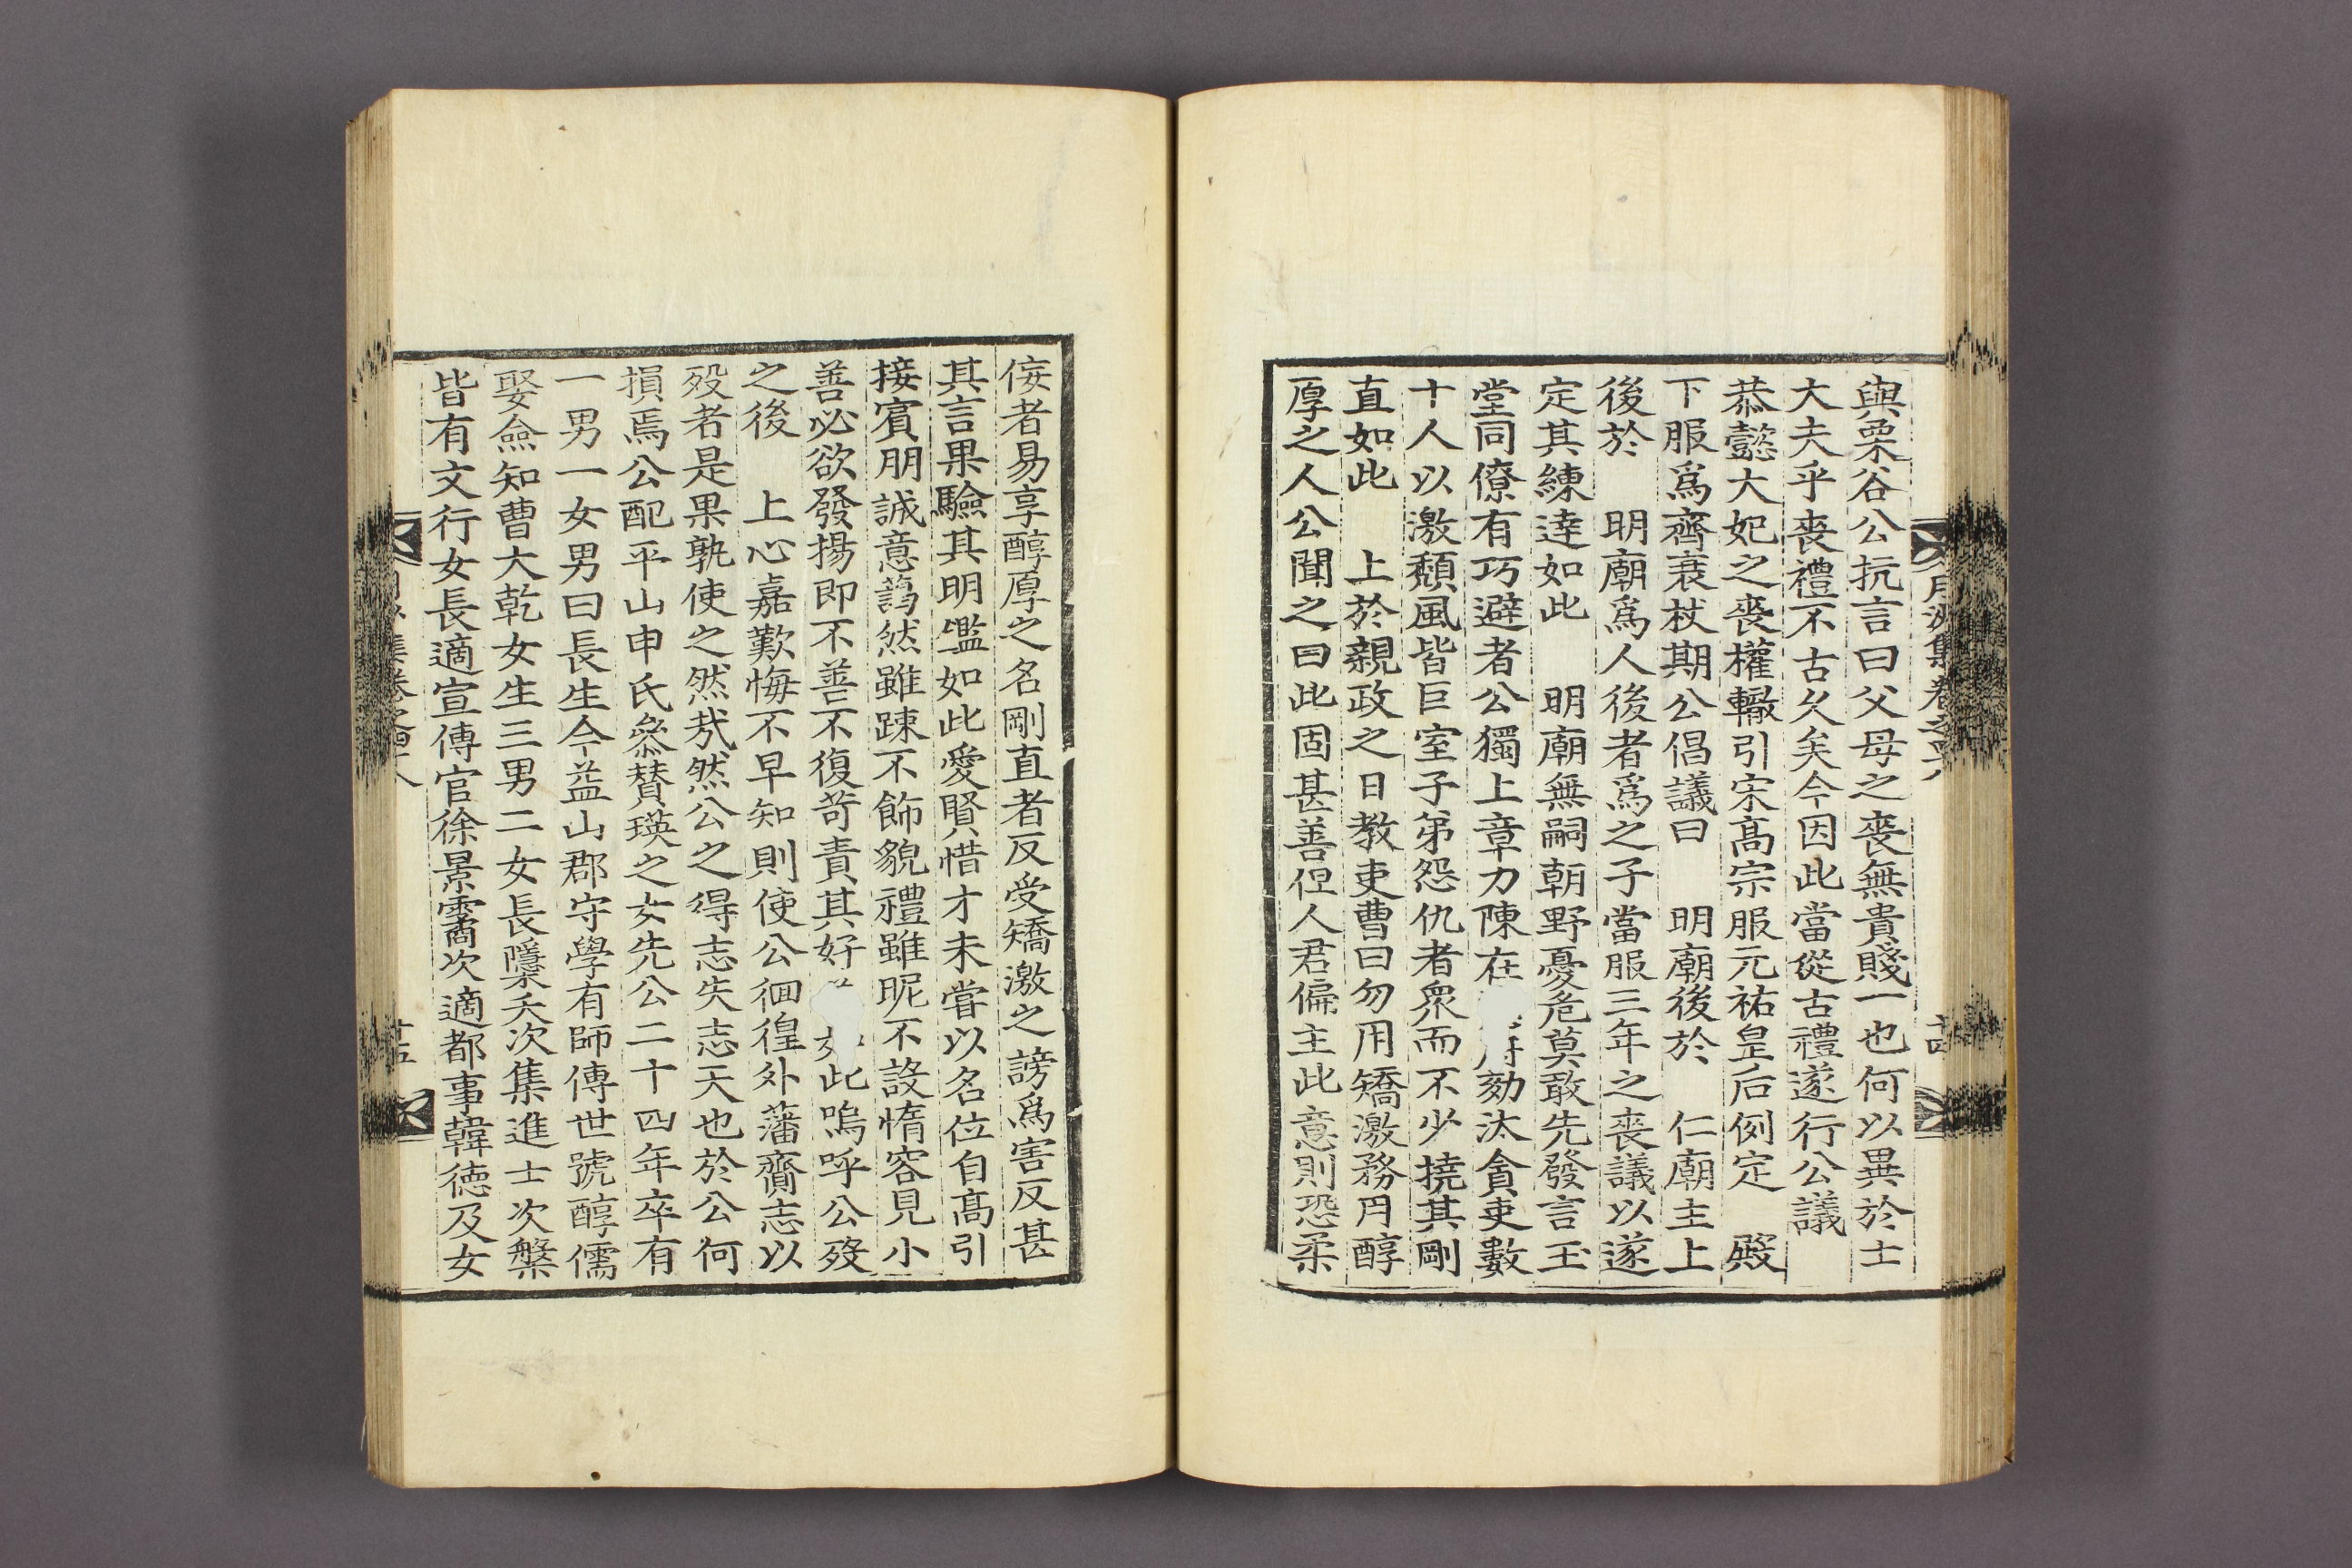 與栗谷公抗言曰父母之喪無貴賤一也何以異於士
大夫乎喪禮不古久矣今因此當從古禮遂行公議
恭懿大妃之喪權轍引宋髙宗服元祐皇后例定 殿
下服爲齊衰杖期公倡議曰 明廟後於 仁廟主上
後於 明廟爲人後者爲之子當服三年之喪議以遂
定其練達如此 明廟無嗣朝野憂危莫敢先發言玉
堂同僚有巧避者公獨上章力陳在 府劾汰貪吏數
十人以激頹風皆巨室子弟怨仇者衆而不少撓其剛
直如此 上於親政之日教吏曹曰勿用矯激務用醇
厚之人公聞之曰此固甚善但人君偏主此意則恐柔
月沙集卷之四十八
十四
佞者易享醇厚之名剛直者反受矯激之謗爲害反甚
其言果驗其明鑑如此愛賢惜才未嘗以名位自髙引
接賓朋誠意藹然雖踈不飾貌禮雖昵不設惰容見小
善必欲發揚即不善不復苛責其好 如此嗚呼公歿
之後 上心嘉歎悔不早知則使公徊徨外藩齎志以
歿者是果孰使之然哉然公之得志失志天也於公何
損焉公配平山申氏叅賛瑛之女先公二十四年卒有
一男一女男曰長生今益山郡守學有師傅世號醇儒
娶僉知曹大乾女生三男二女長隱夭次集進士次槃
皆有文行女長適宣傅官徐景霱次適都事韓德及女
集卷之四十八
十五